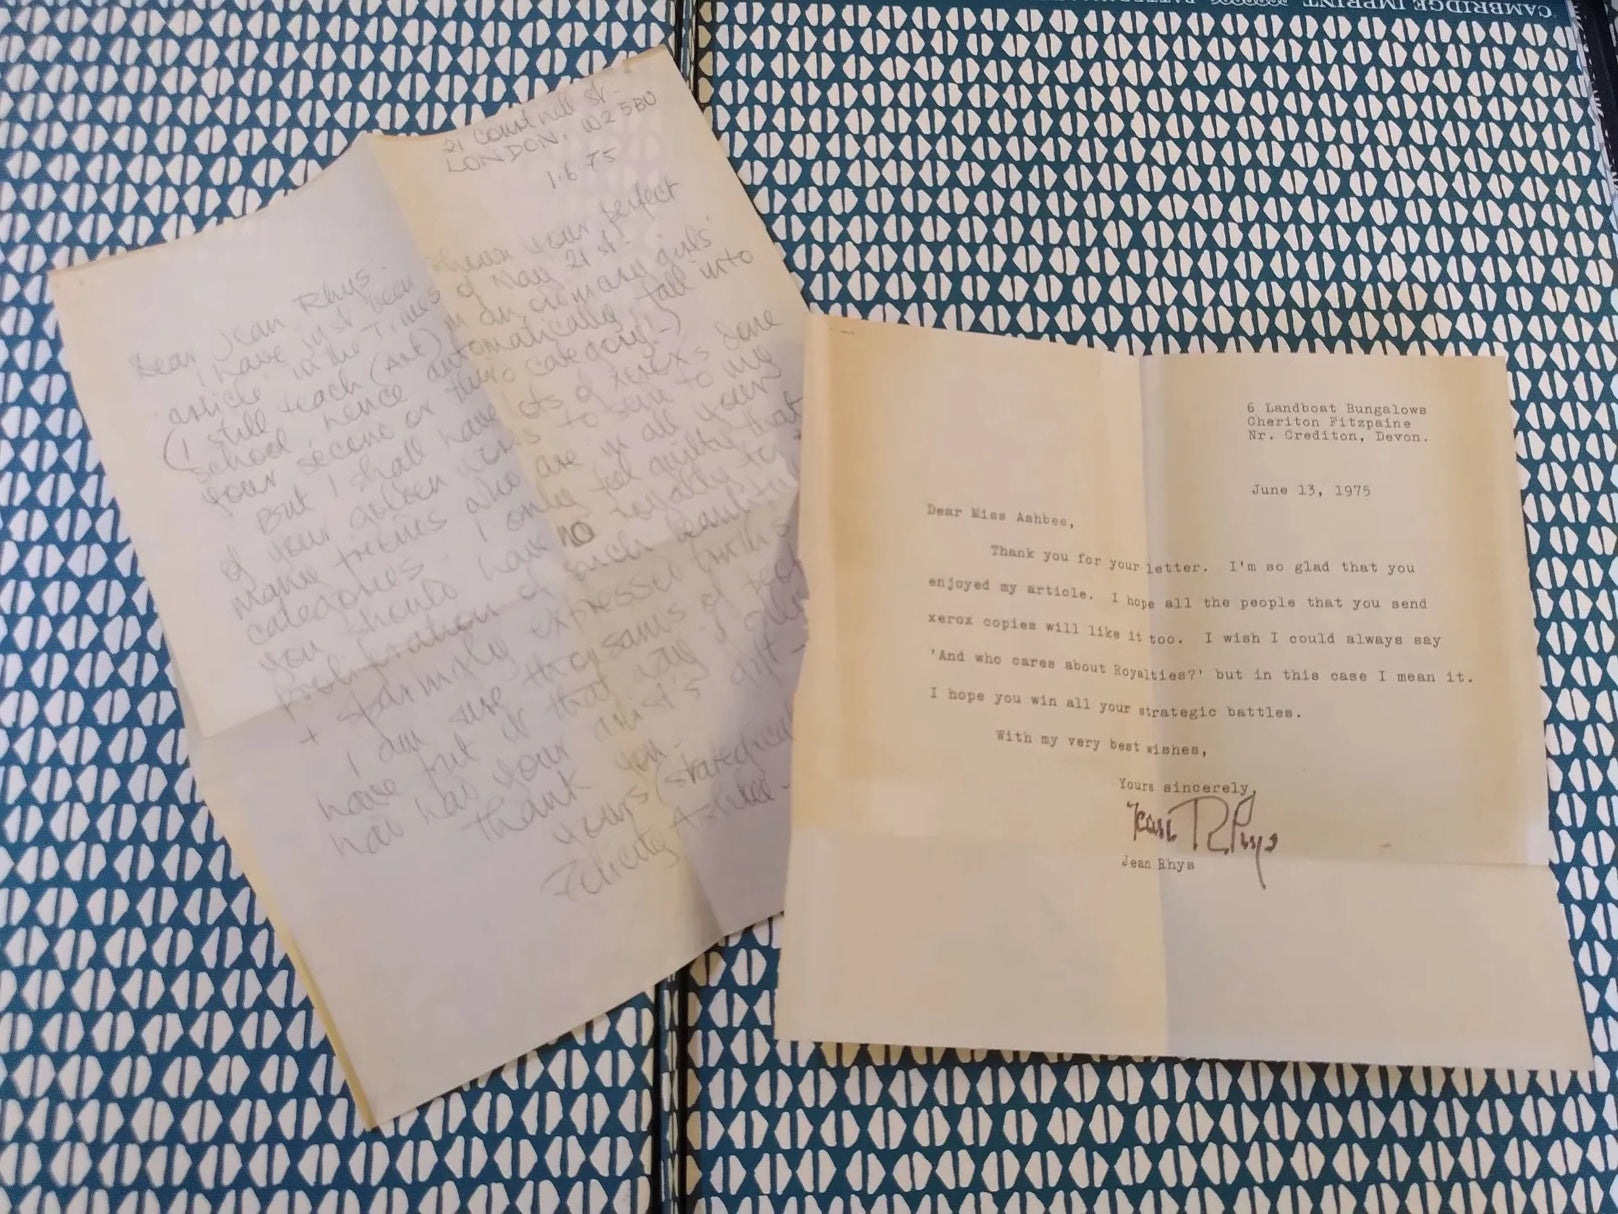 CAMBRIDGE IMPRINT
21 Courtnell St.
LONDON. W2 5BU
1.6.75
Dear Jean Rhys.
I have just been shown your perfect
article in the Times of May 21st.
(I still teach (Art) in an ordinary girls'
school hence automatically fall into
your second or third category!)
But I shall have lots of xerox's done
of your golden words to send to my
many friends who are in all your
categories. I only feel guilty that
you should have NO royalty for
proliferation of such beautiful
+ sparingly expressed truths
I am sure thousands of people
have put it that way if only
had had your artist's gift
Thank you.
Yours (strategical
Felicity Ashbee.
6 Landboat Bungalows
Cheriton Fitzpaine
Nr. Crediton, Devon.
June 13, 1975
Dear Miss Ashbee,
Thank you for your letter. I'm so glad that you
enjoyed my article. I hope all the people that you send
xerox copies will like it too. I wish I could always say
'And who cares about Royalties?' but in this case I mean it.
I hope you win all your strategic battles.
With my very best wishes,
Yours sincerely,
Jean Rhys
Jean Rhys